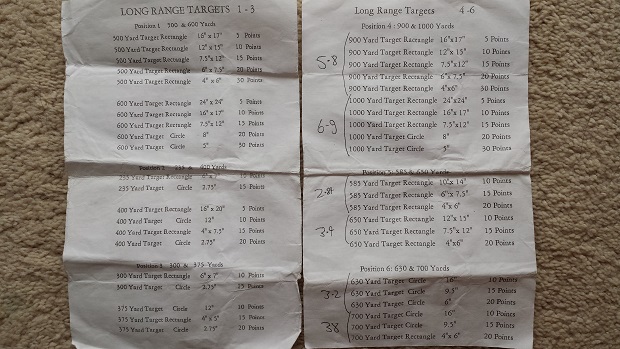 LONG RANGE TARGETS 1 - 3
Position 1 500 & 600 Yards
500 Yard Target Rectangle 16"x 17" 5 Points
500 Yard Target Rectangle 12"x 15" 10 Points
500 Yard Target Rectangle 7.5"x 12" 15 Points
500 Yard Target Rectangle 6"x 7.5" 20 Points
500 Yard Target Rectangle 4"x 6" 30 Points
600 Yard Target Rectangle 24"x 24" 5 Points
600 Yard Target Rectangle 16"x 17" 10 Points
600 Yard Target Rectangle 7.5"x 12" 15 Points
600 Yard Target Circle 8" 20 Points
600 Yard Target Circle 5" 30 Points
Position 2 235 & 400 Yards
235 Yard Target Rectangle 10 Points
235 Yard Target Circle 2.75" 15 Points
400 Yard Target Rectangle 16"x 20" 5 Points
400 Yard Target Circle 12" 10 Points
400 Yard Target Rectangle 4"x 7.5" 15 Points
400 Yard Target Circle 2.75" 20 Points
Position 3 300 & 375 Yards
300 Yard Target Rectangle 6"x 7" 10 Points
300 Yard Target Circle 2.75" 15 Points
375 Yard Target Circle 12" 10 Points
375 Yard Target Rectangle 4"x 5" 15 Points
375 Yard Target Circle 2.75" 20 Points
Long Range Targets 4 -6
Position 4 : 900 & 1000 Yards
900 Yard Target Ractangle 16"x17" 5 Points
900 Yard Target Rectangle 12"x 15" 10 Points
5-8
900 Yard Target Rectangle 7.5"x12" 15 Points
900 Yard Target Rectangle 6"x 7.5" 20 Points
900 Yard Target Rectangle 4"x6" 30 Points
1000 Yard Target Rectangle 24"x24" 5 Points
1000 Yard Target Rectangle 16"x 17" 10 Points
6-9
1000 Yard Target Rectangle 7.5"x12" 15 Points
1000 Yard Target Circle 8" 20 Points
1000 Yard Target Circle 5" 30 Points
Position 5: 585 & 650 Yards
585 Yard Target Rectangle 10"x 14" 10 Points
585 Yard Target Rectangle 6"x 7.5" 15 Points
585 Yard Target Rectangle 4"x 6" 20 Points
650 Yard Target Rectangle 12"x 15" 10 Points
3.4
650 Yard Target Rectangle 7.5"x 12" 15 Points
650 Yard Target Rectangle 4"x6" 20 Points
Position 6: 630 & 700 Yards
630 Yard Target Circle 16" 10 Points
3-2
630 Yard Target Circle 9.5" 15 Points
630 Yard Target Circle 6" 20 Points
700 Yard Target Circle 16" 10 Points
38
700 Yard Target Circle 9.5" 15 Points
700 Yard Target Rectangle 4"x 6" 20 Points